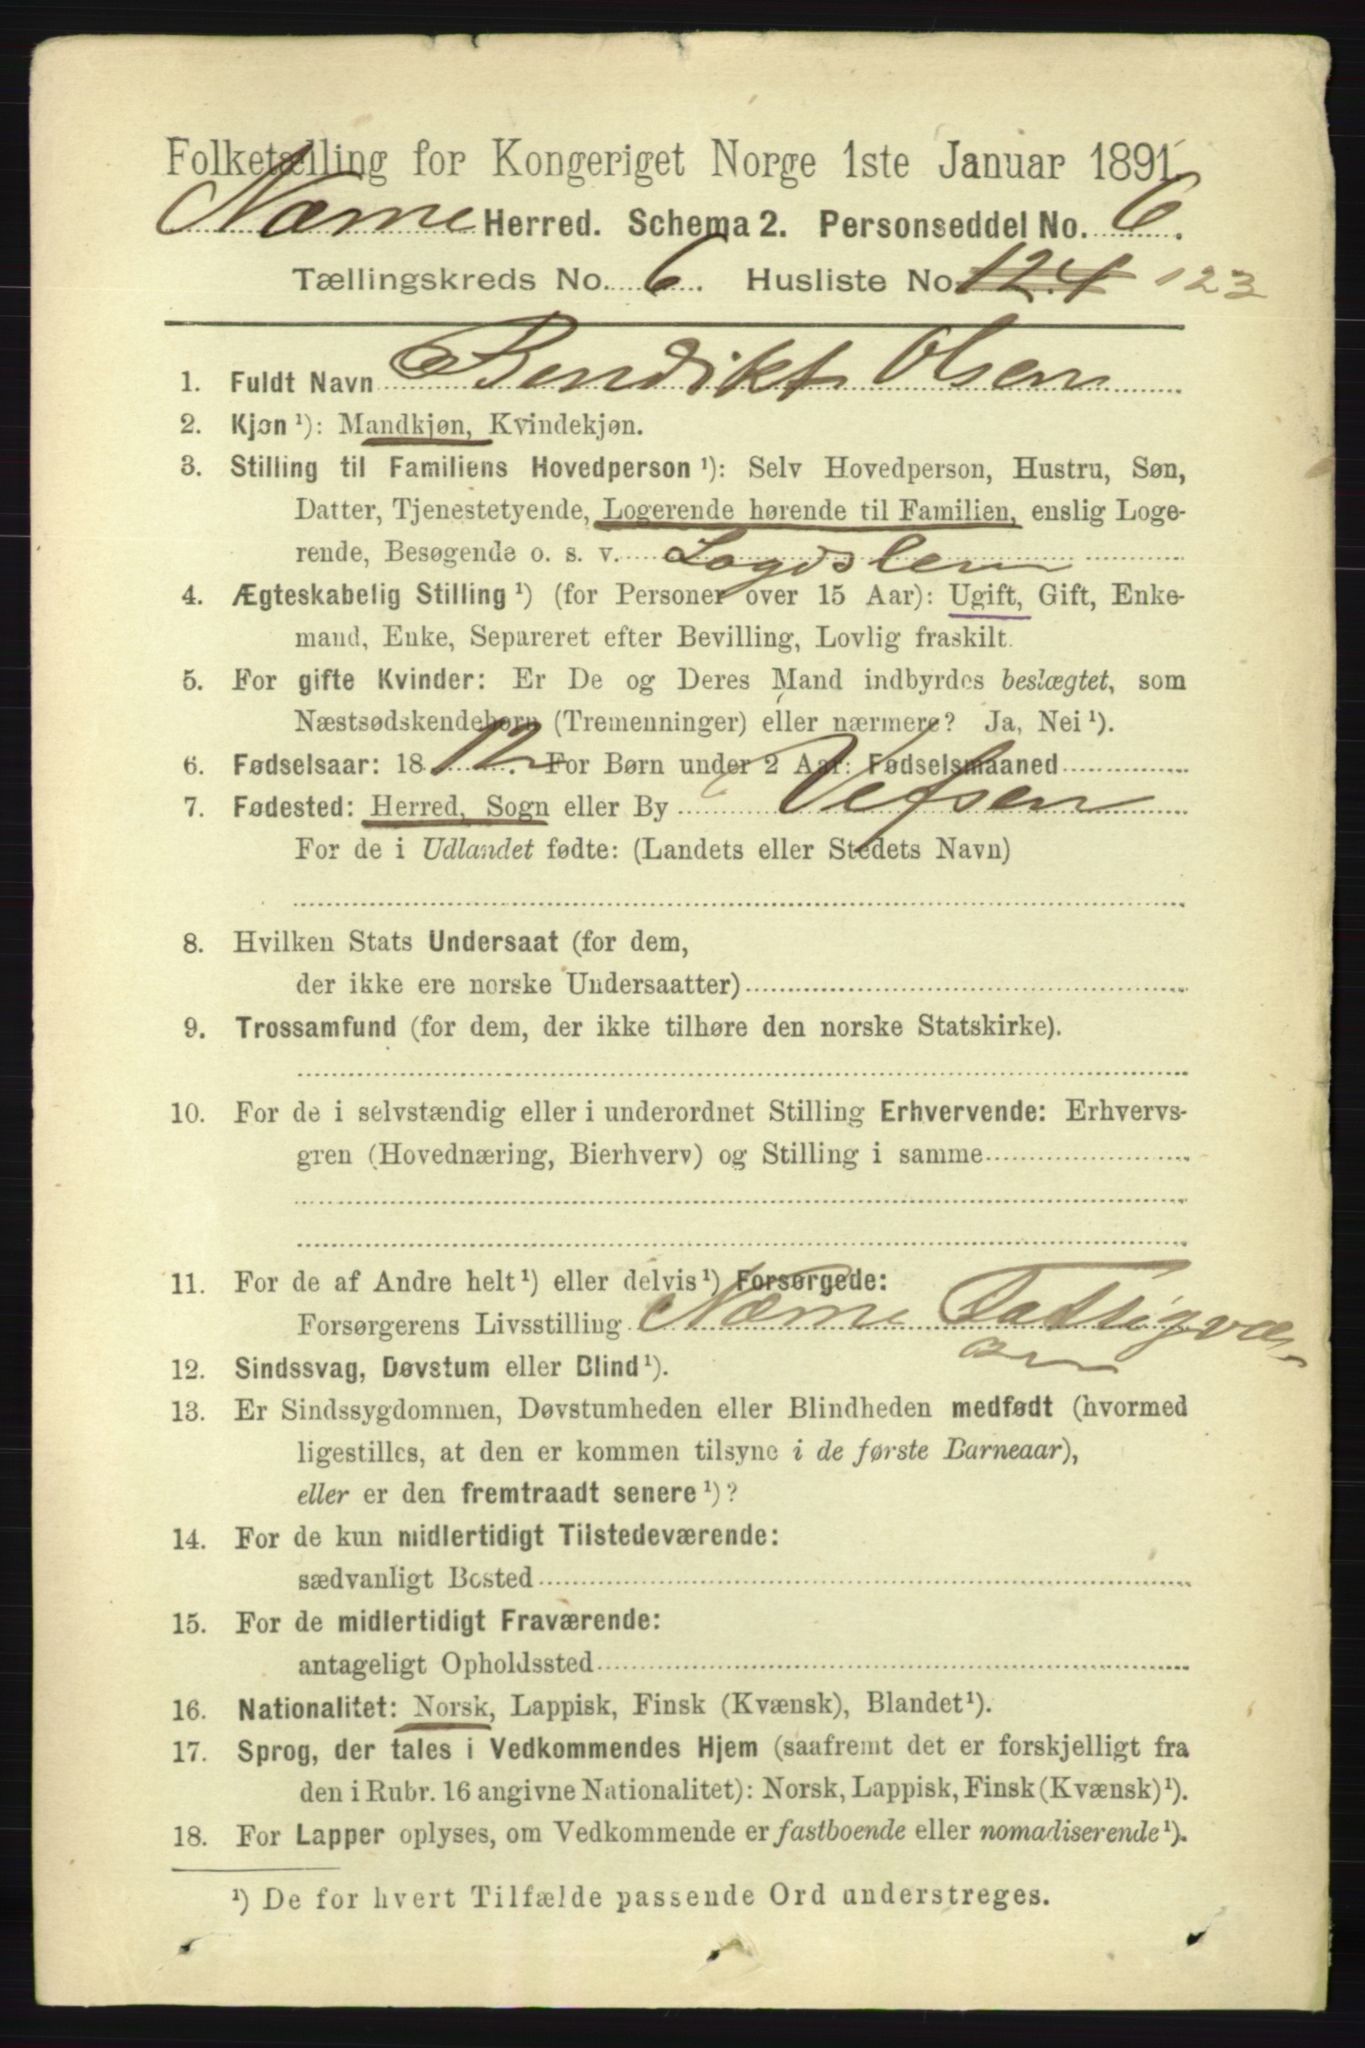 Folketælling for Kongeriget Norge 1ste Januar 1891.
Næsne Herred. Schema 2. Personseddel No. 6.
Tællingskreds No. 6. Husliste No. 124 123
1. Fuldt Navn Bendikt Olsen
2. Kjøn ¹): Mandkjøn, Kvindekjøn.
3. Stilling til Familiens Hovedperson ¹): Selv Hovedperson, Hustru, Søn,
Datter, Tjenestetyende, Logerende hørende til Familien, enslig Loge-
rende, Besøgende o. s. v.
4. Ægteskabelig Stilling ¹) (for Personer over 15 Aar): Ugift, Gift, Enke-
mand, Enke, Separeret efter Bevilling, Lovlig fraskilt.
5. For gifte Kvinder: Er De og Deres Mand indbyrdes beslægtet, som
Næstsødskendebørn (Tremenninger) eller nærmere? Ja, Nei ¹).
6. Fødselsaar: 1812. For Børn under 2 Aar: Fødselsmaaned
7. Fødested: Herred, Sogn eller By Vefsen
For de i Udlandet fødte: (Landets eller Stedets Navn)
8. Hvilken Stats Undersaat (for dem,
der ikke ere norske Undersaatter)
9. Trossamfund (for dem, der ikke tilhøre den norske Statskirke).
10. For de i selvstændig eller i underordnet Stilling Erhvervende: Erhvervs-
gren (Hovednæring, Bierhverv) og Stilling i samme
11. For de af Andre helt ¹) eller delvis ¹) Forsørgede:
Forsørgerens Livsstilling Næsne Fattigvæs-
en
12. Sindssvag, Døvstum eller Blind ¹).
13. Er Sindssygdommen, Døvstumheden eller Blindheden medfødt (hvormed
ligestilles, at den er kommen tilsyne i de første Barneaar),
eller er den fremtraadt senere ¹)?
14. For de kun midlertidigt Tilstedeværende:
sædvanligt Bosted
15. For de midlertidigt Fraværende:
antageligt Opholdssted
16. Nationalitet: Norsk, Lappisk, Finsk (Kvænsk), Blandet ¹).
17. Sprog, der tales i Vedkommendes Hjem (saafremt det er forskjelligt fra
den i Rubr. 16 angivne Nationalitet): Norsk, Lappisk, Finsk (Kvænsk) ¹).
18. For Lapper oplyses, om Vedkommende er fastboende eller nomadiserende ¹).
¹) De for hvert Tilfælde passende Ord understreges.